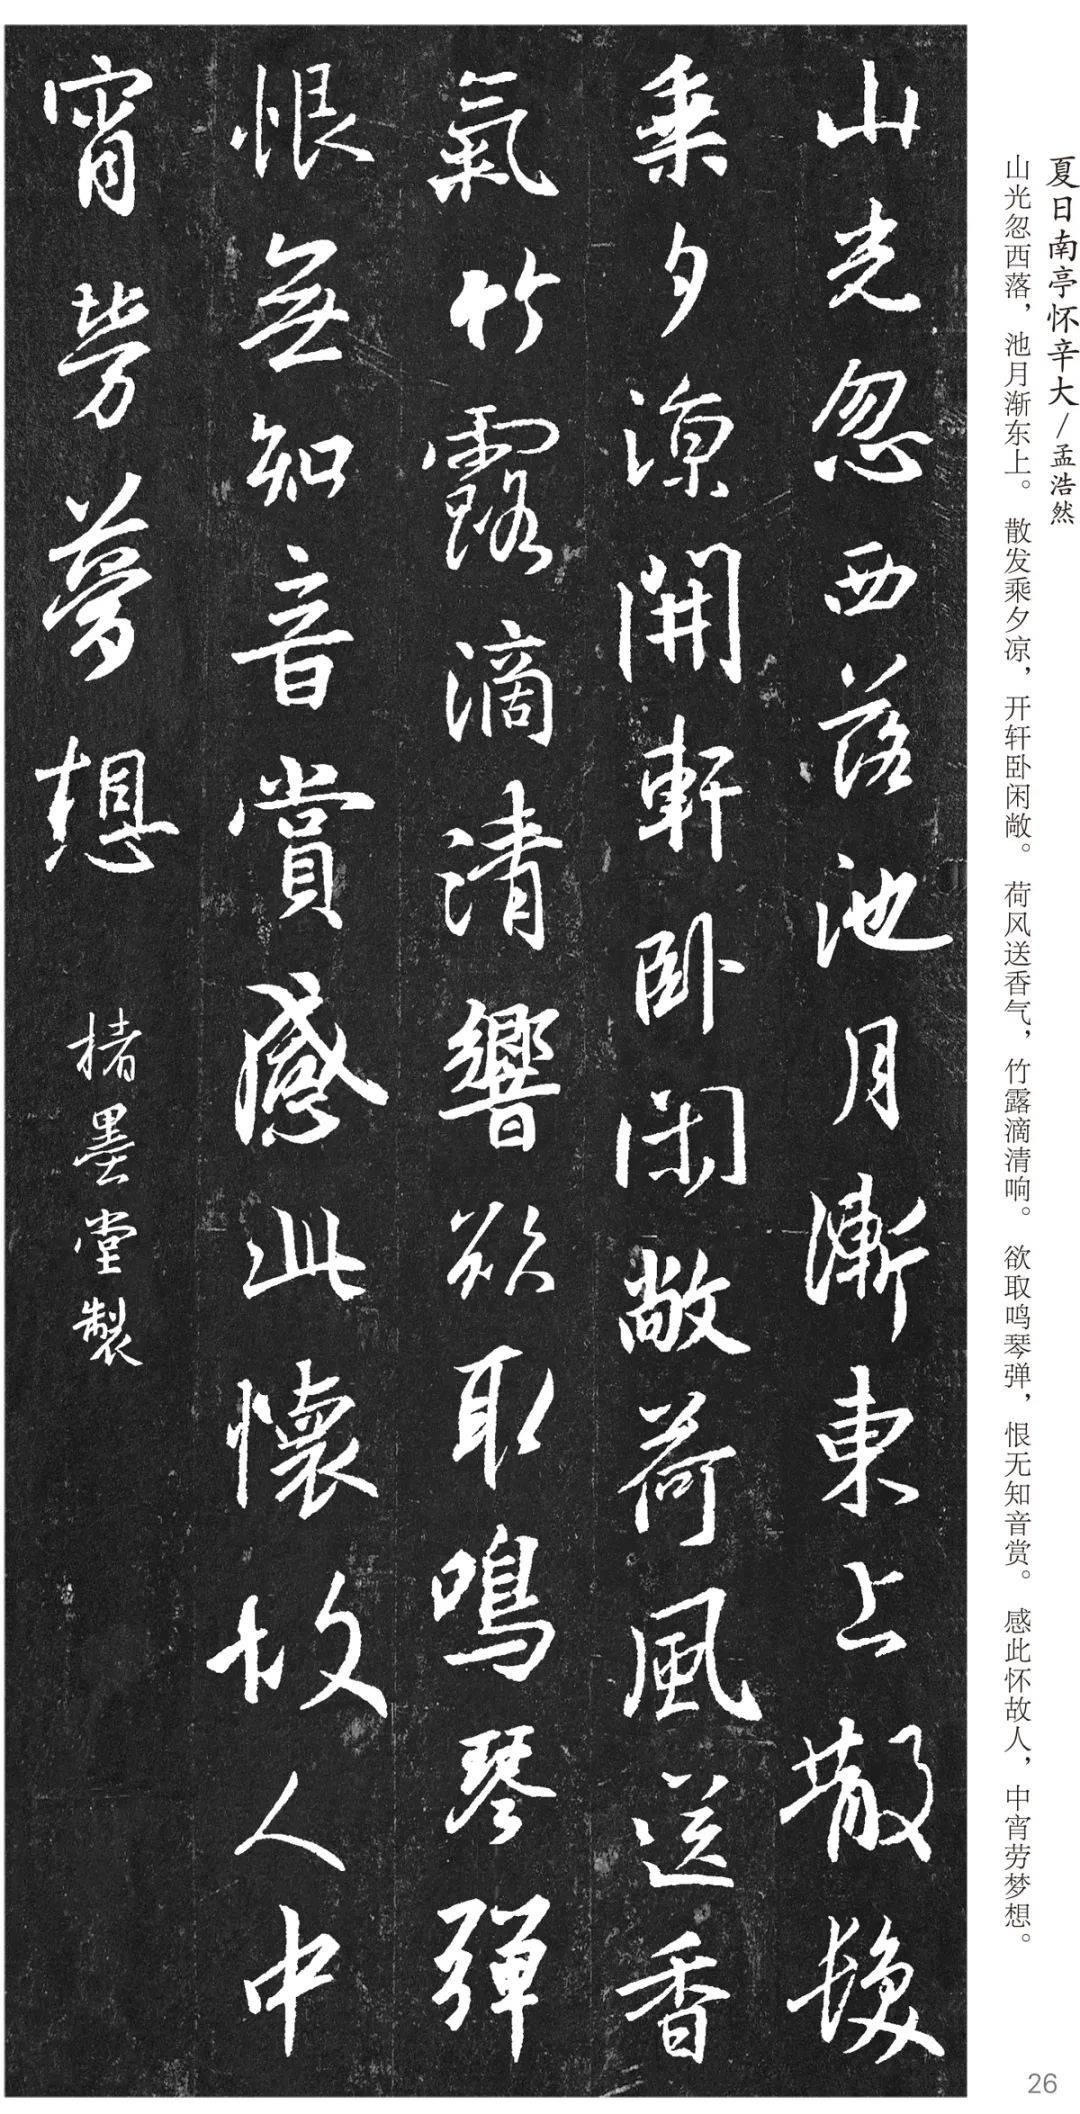 夏日南亭怀辛大/孟浩然
山光忽西落，池月渐东上。 散发乘夕凉，开轩卧闲敞。 荷风送香气，竹露滴清响。 欲取鸣琴弹，恨无知音赏。 感此怀故人，中宵劳梦想。
山光忽西落池月漸東上散髮
乘夕涼開軒卧閑敞荷風送香
氣竹露滴清響欲取鳴琴彈
恨無知音賞感此懷故人中
宵勞夢想 楮墨堂製
26